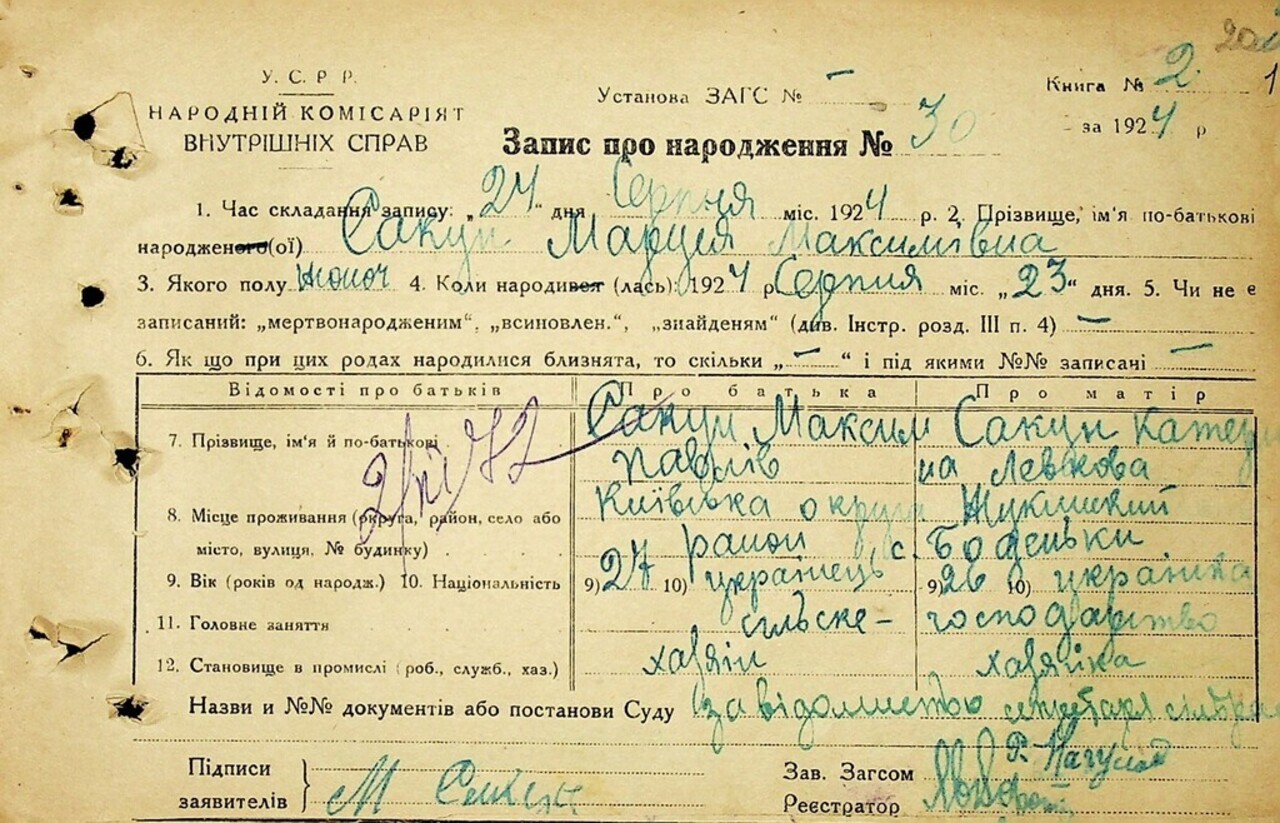 У. С. Р. Р.
НАРОДНІЙ КОМІСАРІЯТ
ВНУТРІШНІХ СПРАВ
Установа ЗАГС № –
Книга № 2
1
за 1924 р
Запис про народження № 30
1. Час складання запису: „27“ дня Серпня міс. 1924 р. 2. Прізвище, ім'я по-батькові
народженого(ої) Сакун Марція Максимівна
3. Якого полу жоноч 4. Коли народився (лась): 1924 р Серпня міс. „23“ дня. 5. Чи не є
записаний: „мертвонародженим“, „всиновлен.“, „знайденям“ (див. Інстр. розд. III п. 4) –
6. Як що при цих родах народилися близнята, то скільки „–“ і під якими №№ записачі –
Відомості про батьків Про батька Про матір
7. Прізвище, ім'я й по-батькові Сакун Максим Сакун Катери
Павлів на Левкова
8. Місце проживання (округа, район, село або Київська округа Жукинский
місто, вулиця, № будинку) район, с. Боденьки
9. Вік (років од народж.) 10. Національність 9) 27 10) українець 9) 26 10) українка
11. Головне заняття сільске- господарство
12. Становище в промислі (роб., служб., хаз.) хазяїн хазяйка
Назви и №№ документів або постанови Суду за відомистю секретаря сільра
Підписи
заявителів М Сакун
Зав. Загсом
Реєстратор